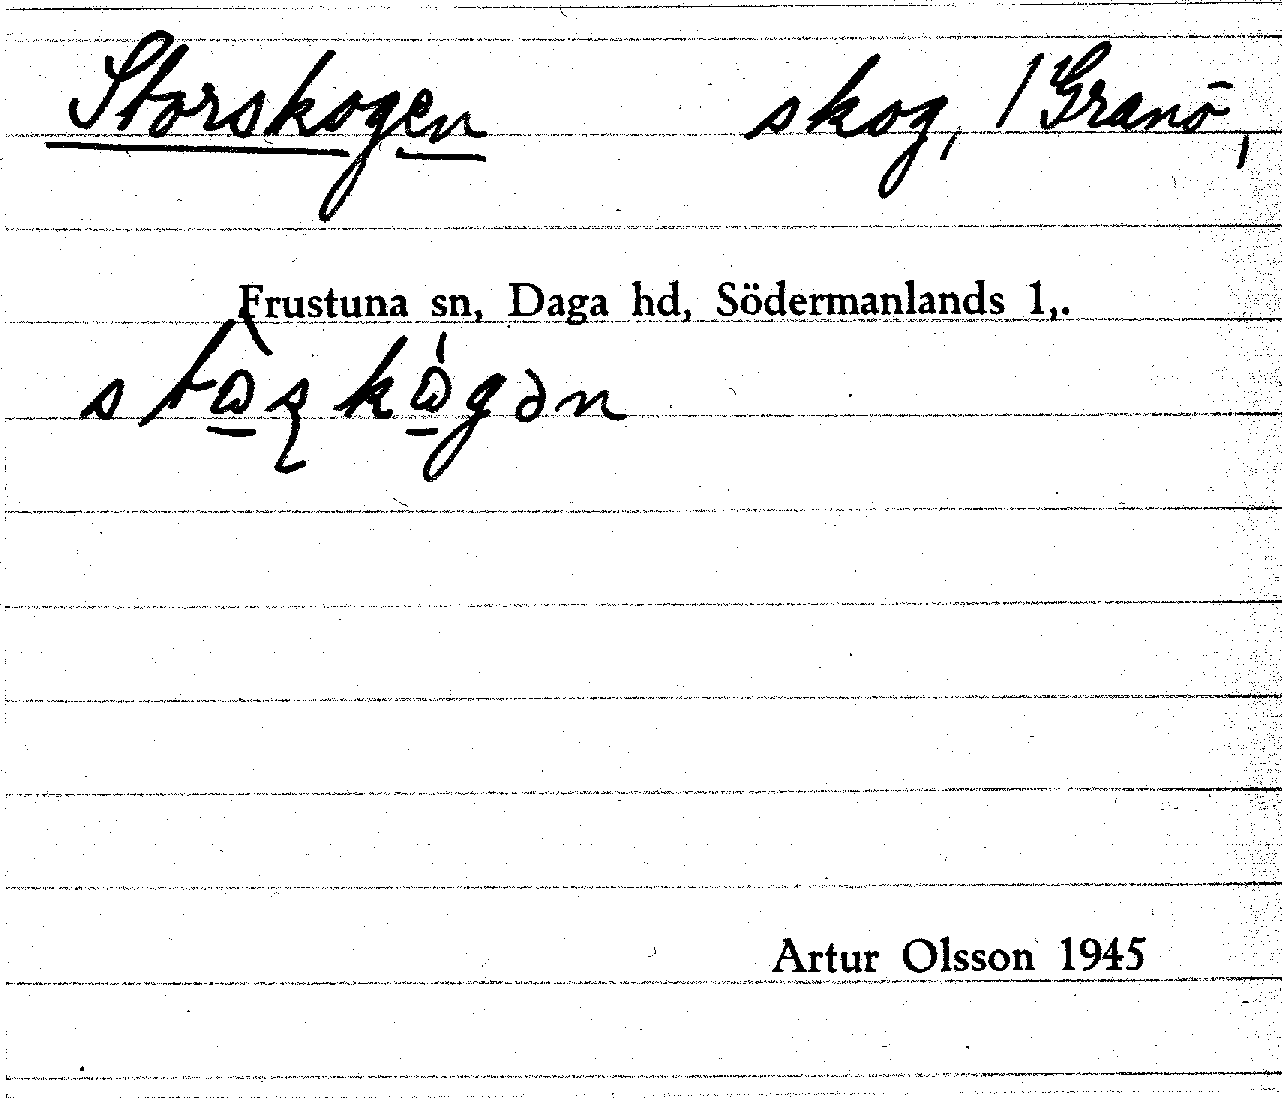 Storskogen skog, 1 Granö,
Frustuna sn, Daga hd, Södermanlands l,.
Artur Olsson 1945